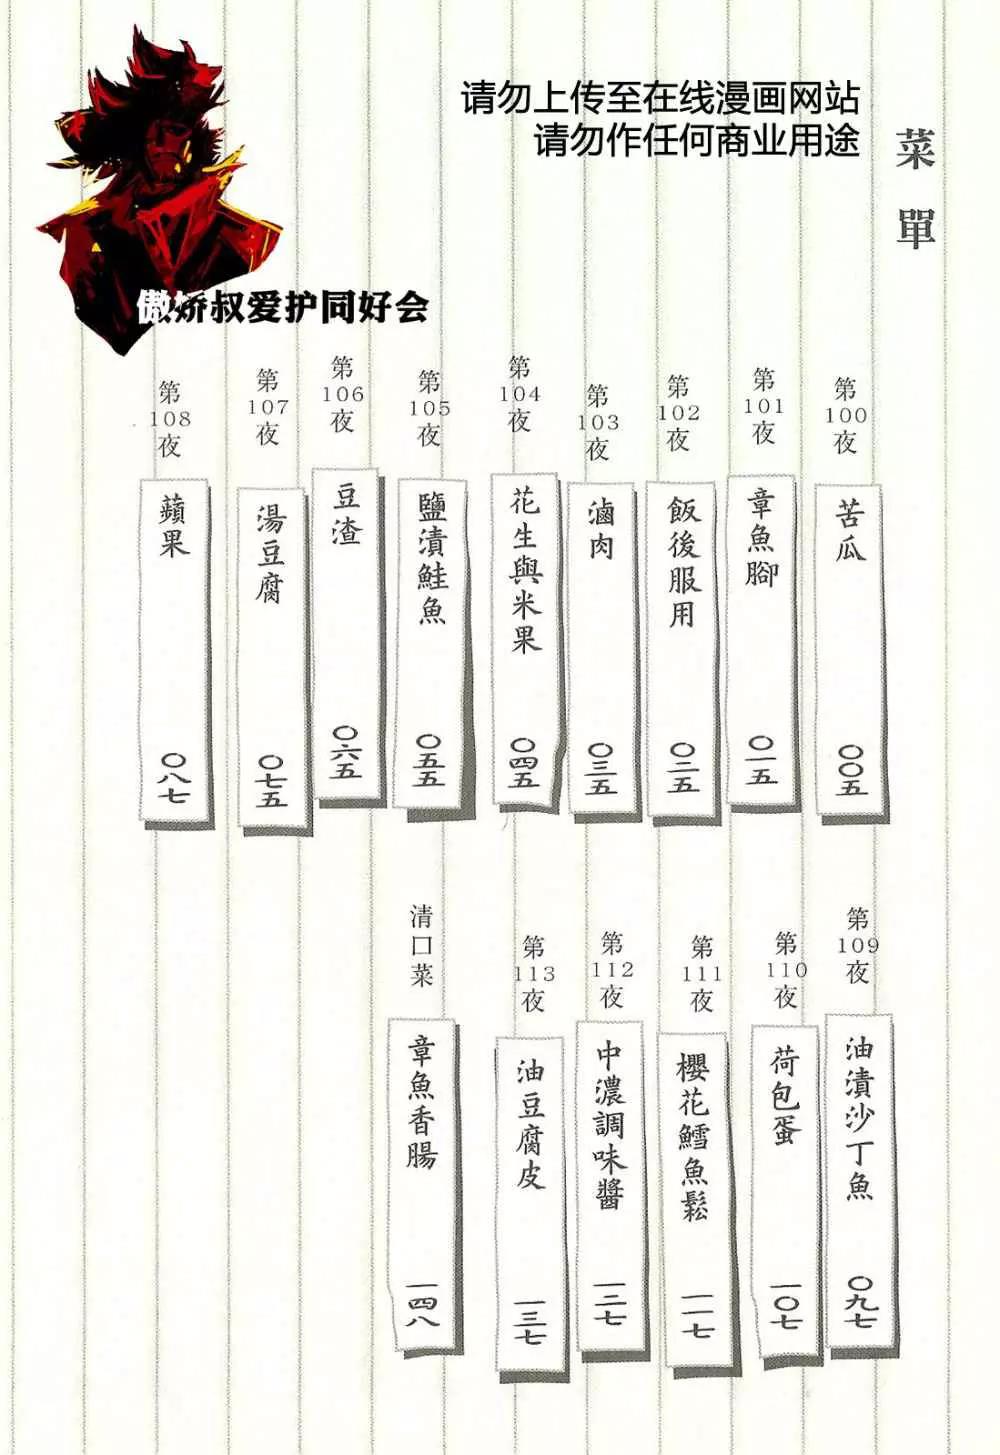 请勿上传至在线漫画网站
请勿作任何商业用途
傲娇叔爱护同好会
菜單
第100夜
苦瓜
〇〇五
第101夜
章魚腳
〇一五
第102夜
飯後服用
〇二五
第103夜
滷肉
〇三五
第104夜
花生與米果
〇四五
第105夜
鹽漬鮭魚
〇五五
第106夜
豆渣
〇六五
第107夜
湯豆腐
〇七五
第108夜
蘋果
〇八七
第109夜
油漬沙丁魚
〇九七
第110夜
荷包蛋
一〇七
第111夜
櫻花鱈魚鬆
一一七
第112夜
中濃調味醬
一二七
第113夜
油豆腐皮
一三七
清口菜
章魚香腸
一四八